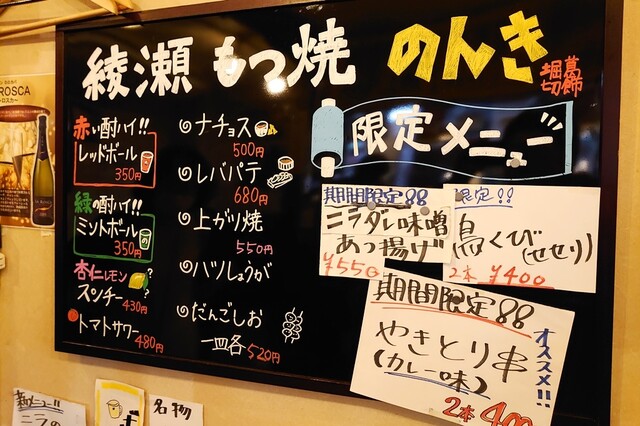 綾瀬 もつ焼 のんき
葛飾
堀切
ROSCA
赤い酎ハイ!!
レッドボール
350円
緑の酎ハイ!!
ミントボール
350円
杏仁レモン??
スンチー 430円
トマトサワー 480円
ナチョス
500円
レバパテ
680円
上がり焼
550円
ハツしょうが
だんごしお
一皿各520円
限定メニュー
期間限定!!
ニラダレ味噌
あつ揚げ
¥550
限定!!
鳥くび(せせり)
2本 ¥400
期間限定!!
やきとり串
(カレー味)
オススメ!!
2本 400
ニラの
名物